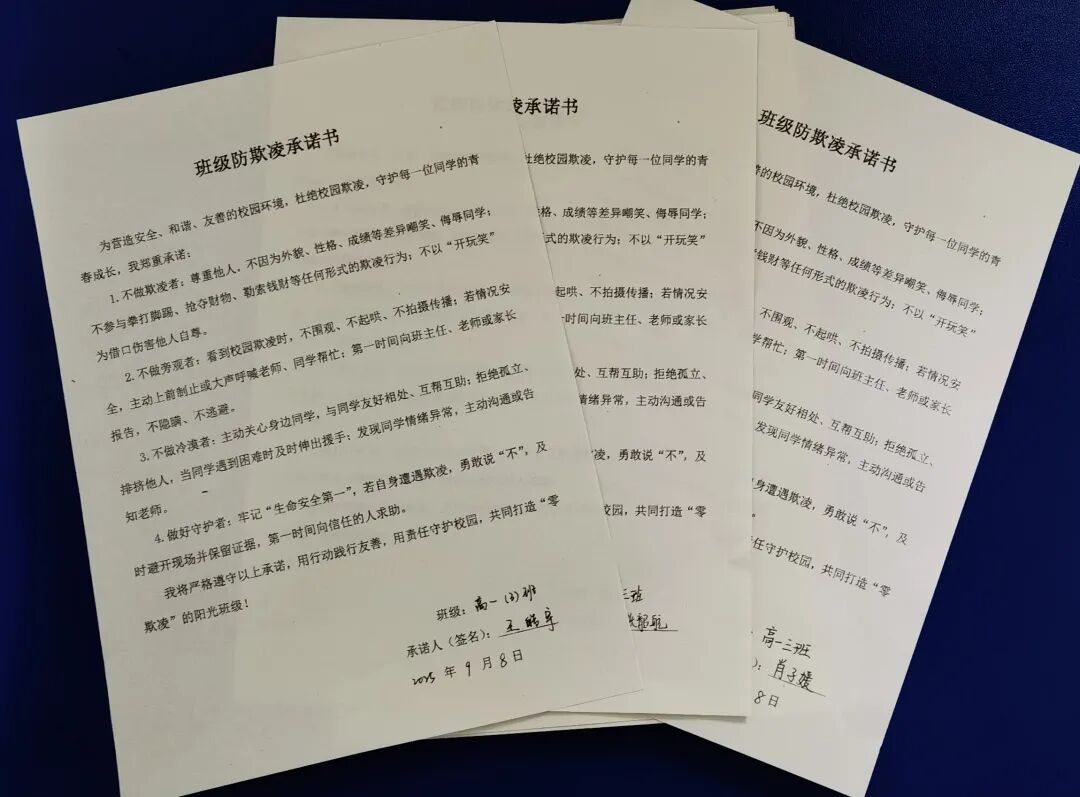 班级防欺凌承诺书
为营造安全、和谐、友善的校园环境，杜绝校园欺凌，守护每一位同学的青
春成长，我郑重承诺：
1.不做欺凌者：尊重他人，不因为外貌、性格、成绩等差异嘲笑、侮辱同学；
不参与拳打脚踢、抢夺财物、勒索钱财等任何形式的欺凌行为；不以“开玩笑”
为借口伤害他人自尊。
2.不做旁观者：看到校园欺凌时，不围观、不起哄、不拍摄传播；若情况安
全，主动上前制止或大声呼喊老师、同学帮忙；第一时间向班主任、老师或家长
报告，不隐瞒、不逃避。
3.不做冷漠者：主动关心身边同学，与同学友好相处、互帮互助；拒绝孤立、
排挤他人，当同学遇到困难时及时伸出援手；发现同学情绪异常，主动沟通或告
知老师。
4.做好守护者：牢记“生命安全第一”，若自身遭遇欺凌，勇敢说“不”，及
时避开现场并保留证据，第一时间向信任的人求助。
我将严格遵守以上承诺，用行动践行友善，用责任守护校园，共同打造“零
欺凌”的阳光班级！
班级：高一（3）班
承诺人（签名）：王皓宇
2025 年 9 月 8 日
凌承诺书
校园欺凌，守护每一位同学的青
格、成绩等差异嘲笑、侮辱同学；
式的欺凌行为；不以“开玩笑”
起哄、不拍摄传播；若情况安
一时间向班主任、老师或家长
处、互帮互助；拒绝孤立、
情绪异常，主动沟通或告
凌，勇敢说“不”，及
校园，共同打造“零
三班
班级防欺凌承诺书
善的校园环境，杜绝校园欺凌，守护每一位同学的青
不因为外貌、性格、成绩等差异嘲笑、侮辱同学；
索钱财等任何形式的欺凌行为；不以“开玩笑”
不围观、不起哄、不拍摄传播；若情况安
学帮忙；第一时间向班主任、老师或家长
同学友好相处、互帮互助；拒绝孤立、
发现同学情绪异常，主动沟通或告
身遭遇欺凌，勇敢说“不”，及
责任守护校园，共同打造“零
高一三班
）：肖子媛
8 日